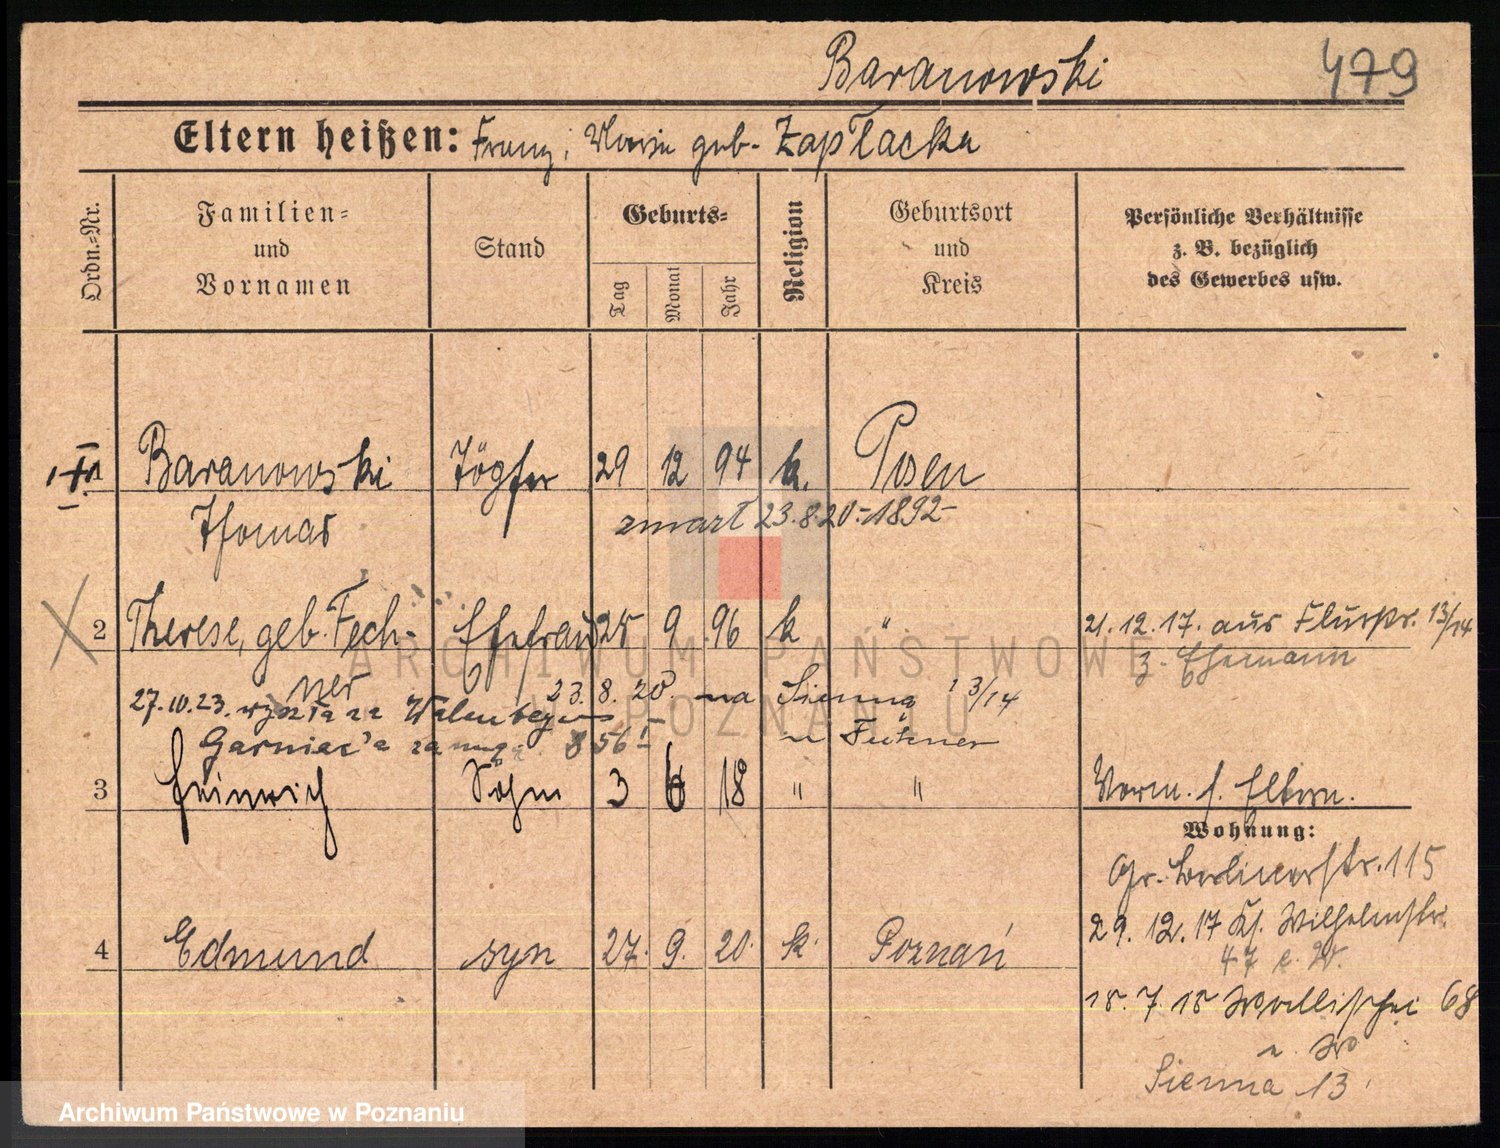 Baranowski
479
Eltern heißen: Franz, Marie geb. Zapłacka
Ordn.-Nr.
Familien-
und
Vornamen
Stand
Geburts-
Tag
Monat
Jahr
Religion
Geburtsort
und
Kreis
Persönliche Verhältnisse
z. B. bezüglich
des Gewerbes usw.
1 Baranowski Töpfer 29 12 94 k. Posen
Thomas
zmarł 23.8.20 - 1892 -
2 Therese, geb. Fech- Ehefrau 25 9 96 k " 21.12.17. aus Flurstr. 13/14
ner z. Ehemann
23.8.20. na Sienną 13/14
27.10.23. wyszła za
Garniec'a za mąż. 856 I
3 Heinrich Sohn 3 6 18 " " Worm. s. Eltern.
Wohnung:
Gr. Berlinerstr. 115
29.12.17 Kl. Wilhelmstr.
47
4 Edmund syn 27. 9. 20. k. Poznań
18.7.18 Wallischei 68
Sienna 13
ARCHIWUM PAŃSTWOWE
W POZNANIU
Archiwum Państwowe w Poznaniu